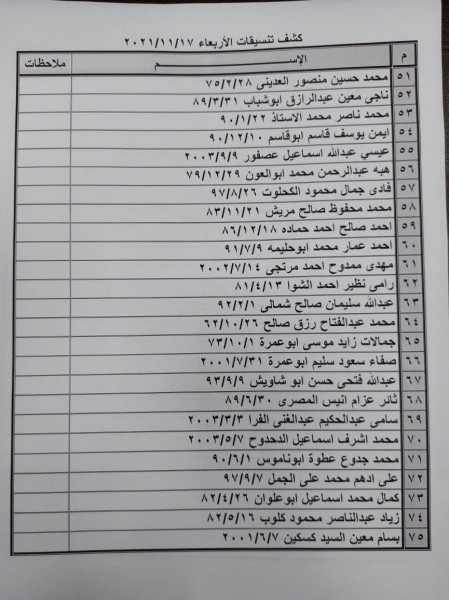 كشف تنسيقات الأربعاء ٢٠٢١/١١/١٧
م الإســـــم ملاحظات
٥١ محمد حسين منصور العديني ٧٥/٢/٢٨
٥٢ ناجى معين عبدالرازق ابوشباب ٨٩/٣/٣١
٥٣ محمد ناصر محمد الاستاذ ٩٠/١/٢٢
٥٤ ايمن يوسف قاسم ابوقاسم ٩٠/١٢/١٠
٥٥ عيسي عبدالله اسماعيل عصفور ٢٠٠٣/٩/٩
٥٦ هبه عبدالرحمن محمد ابوالعون ٧٩/١٢/٢٩
٥٧ فادى جمال محمود الكحلوت ٩٧/٨/٢٦
٥٨ محمد محفوظ صالح مريش ٨٣/١١/٢١
٥٩ احمد صالح احمد حماده ٨٦/١٢/١٨
٦٠ احمد عمار محمد ابوحليمه ٩١/٧/٩
٦١ مهدى ممدوح احمد مرتجى ٢٠٠٢/٧/١٤
٦٢ رامى نظير احمد الشوا ٨١/٤/١٣
٦٣ عبدالله سليمان صالح شمالى ٩٢/٢/١
٦٤ محمد عبدالفتاح رزق صالح ٦٢/١٠/٢٦
٦٥ جمالات زايد موسى ابوعمرة ٧٣/١٠/١
٦٦ صفاء سعود سليم ابوعمرة ٢٠٠١/٧/٣١
٦٧ عبدالله فتحى حسن ابو شاويش ٩٣/٩/٩
٦٨ ثائر عزام انيس المصرى ٨٩/٦/٣٠
٦٩ سامى عبدالحكيم عبدالغنى الفرا ٢٠٠٣/٣/٣
٧٠ محمد اشرف اسماعيل الدحدوح ٢٠٠٣/٥/٧
٧١ محمد جدوع عطوة ابوناموس ٩٠/٦/١
٧٢ على ادهم محمد على الجمل ٩٧/٩/٧
٧٣ كمال محمد اسماعيل ابوعلوان ٨٢/٤/٢٦
٧٤ زياد عبدالناصر محمود كلوب ٨٢/٥/١٦
٧٥ بسام معين السيد كسكين ٢٠٠١/٦/٧